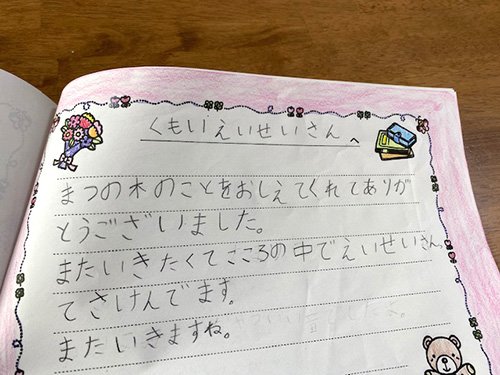 くもいえいせいさんへ
まつの木のことをおしえてくれてありが
とうございました。
またいきたくてこころの中でえいせいさん。
てさけんでます。
またいきますね。